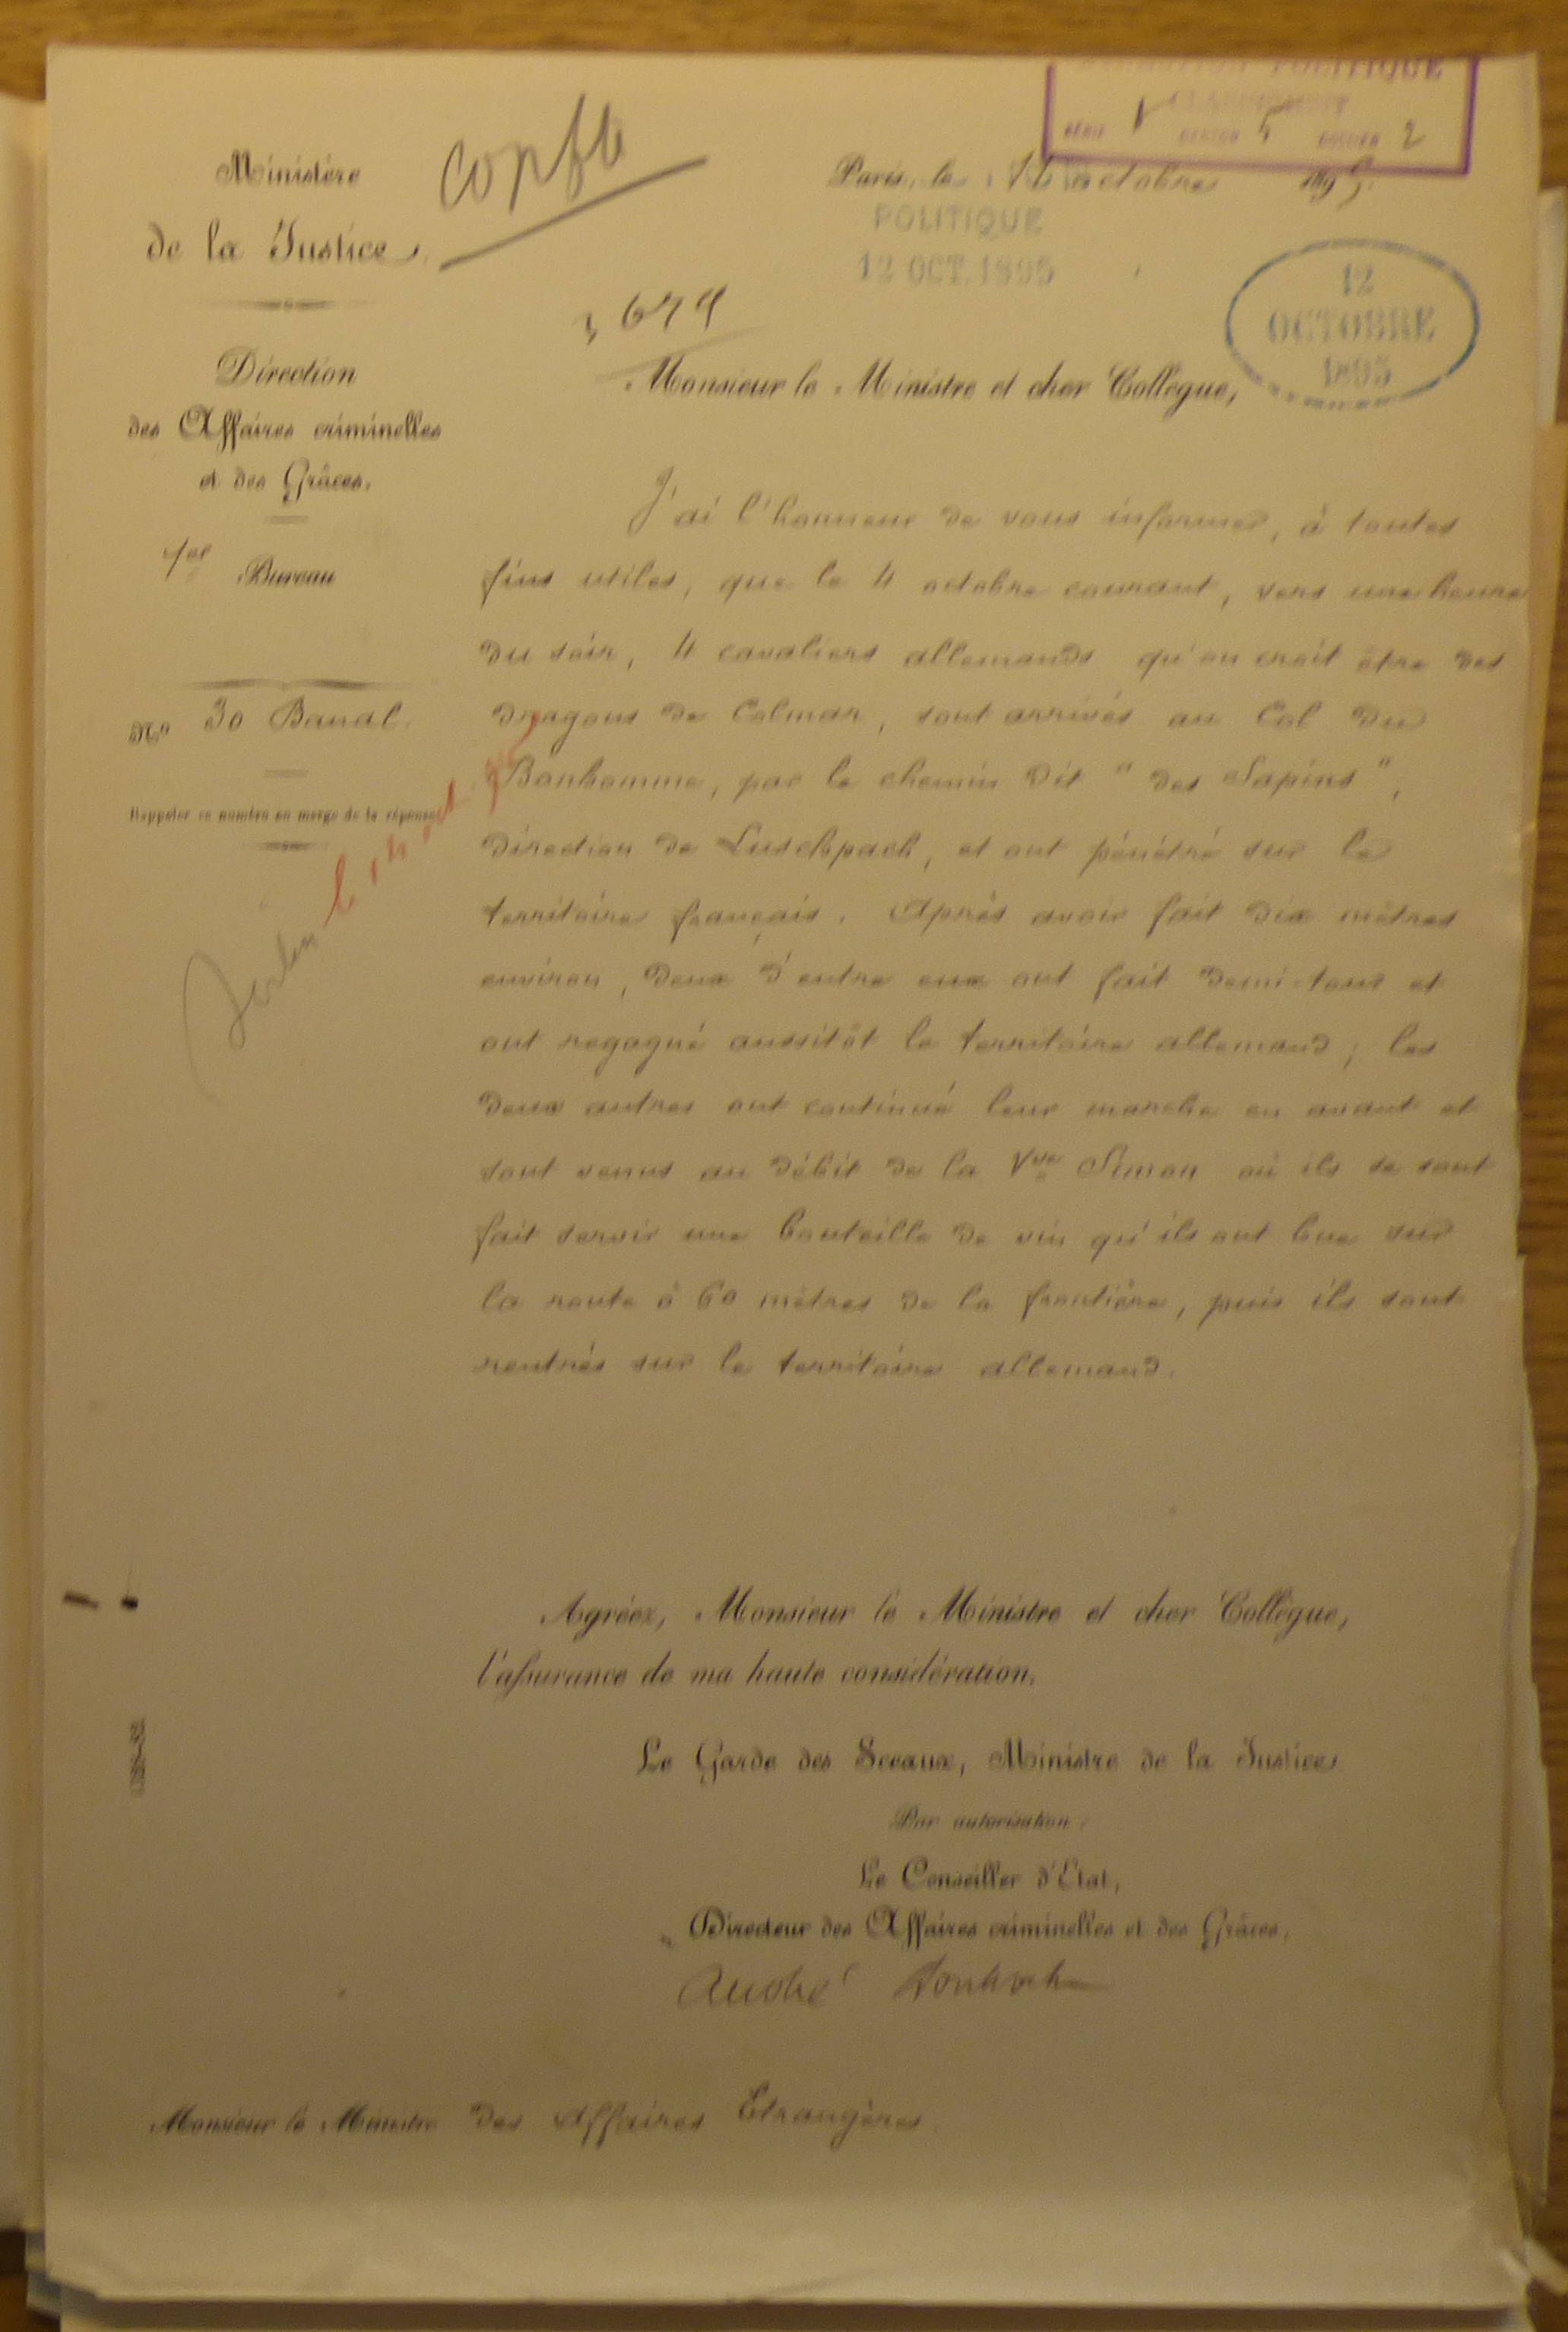 DIRECTION POLITIQUE
CLASSEMENT
5 2
Ministère
de la Justice.
Paris, le octobre 1895.
POLITIQUE
12 OCT. 1895
12
OCTOBRE
1895
Direction
des Affaires criminelles
et des Grâces.
1er Bureau
No 30 Banal.
Rappeler ce numéro en marge de la réponse
Monsieur le Ministre et cher Collègue,
J'ai l'honneur de vous informer, à toutes
fins utiles, que le 4 octobre courant, vers une heure
du soir, 4 cavaliers allemands qu'on croit être des
dragons de Colmar, sont arrivés au Col du
Bonhomme, par le chemin dit " des Sapins ",
direction de Luschpach, et ont pénétré sur le
territoire français. Après avoir fait dix mètres
environ, deux d'entre eux ont fait demi-tour et
ont regagné aussitôt le territoire allemand ; les
deux autres ont continué leur marche en avant et
sont venus au débit de la Vve Simon où ils se sont
fait servir une bouteille de vin qu'ils ont bue sur
la route à 60 mètres de la frontière, puis ils sont
rentrés sur le territoire allemand.
Agréez, Monsieur le Ministre et cher Collègue,
l'assurance de ma haute considération.
Le Garde des Sceaux, Ministre de la Justice
Par autorisation :
Le Conseiller d'Etat,
Directeur des Affaires criminelles et des Grâces,
André
Monsieur le Ministre des Affaires Etrangères.